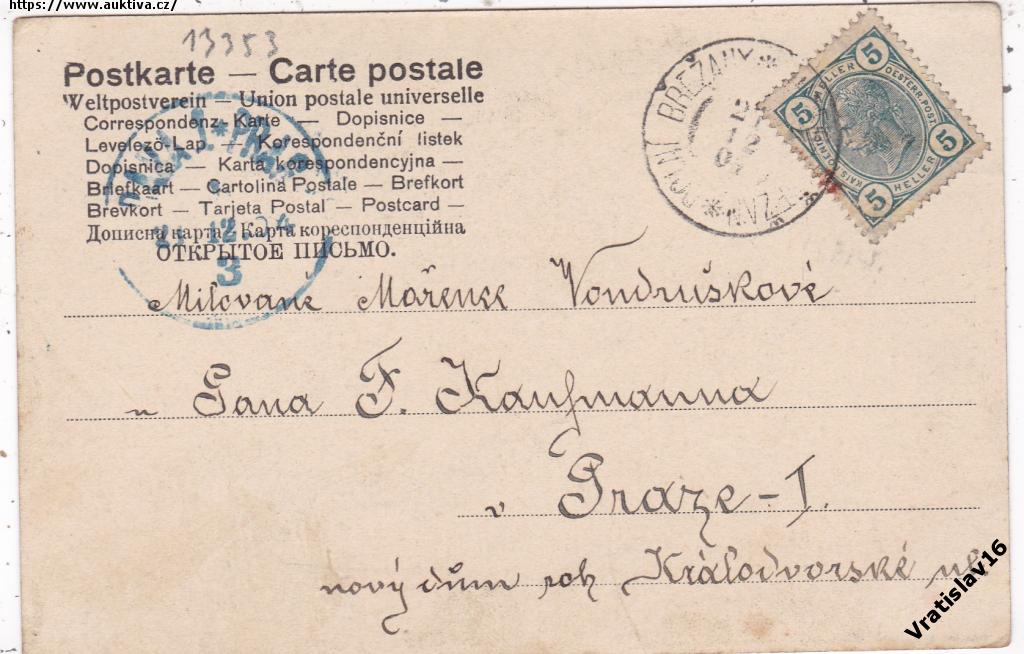 https://www.auktiva.cz/
13353
Postkarte — Carte postale
Weltpostverein — Union postale universelle
Correspondenz-Karte — Dopisnice —
Levelező-Lap. — Korespondenční listek
Dopisnica — Karta korespondencyjna —
Briefkaart — Cartolina Postale — Brefkort
Brevkort — Tarjeta Postal — Postcard —
Дописна карта / Карта кореспонденційна
ОТКРЫТОЕ ПИСЬМО.
DOLNÍ BŘEŽANY
12
5 HELLER 5
OESTERR. POST.
5 HELLER 5
3
Milované Mařence Vondruškové
u Pana F. Kaufmanna
v Praze-I.
nový dům roh Králodvorské
Vratislav16